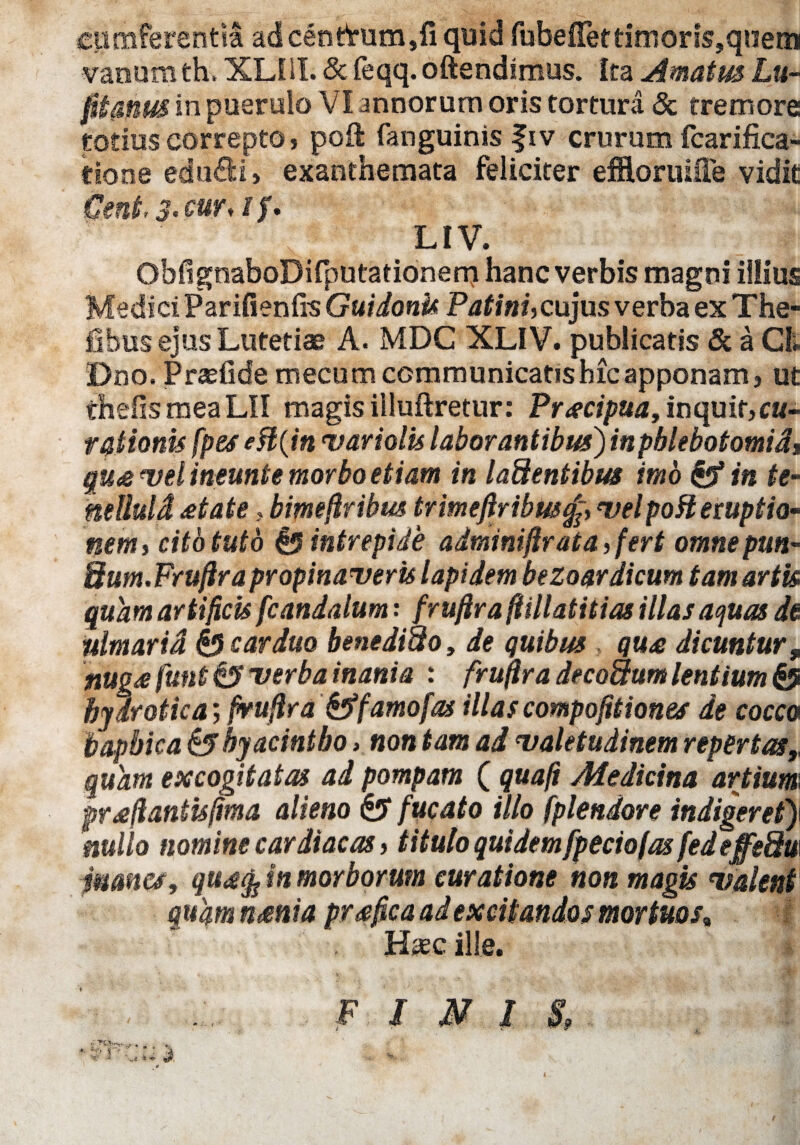 cumferentiâ ad centrum, ſi quid ſubeſſet timoris, quem
vanum th. XLIII. & ſeqq. oſtendimus. Ita Amatus Lu-
ſitanus in puerulo VI annorum oris torturâ & tremore
totius correpto, poſt ſanguinis ℥iv crurum ſcarifica-
tione educti, exanthemata feliciter effloruiſſe vidit
Cent. 3. cur. 1 ſ.
LIV.
Obſignabo Diſputationem hanc verbis magni illius
Medici Pariſienſis Guidonis Patini, cujus verba ex The-
ſibus ejus Lutetiæ A. MDC XLIV. publicatis & à Cl.
Dno. Præſide mecum communicatis hîc apponam, ut
theſis mea LII magis illuſtretur: Præcipua, inquit, cu-
rationis ſpes eſt (in variolis laborantibus) in phlebotomiâ,
quæ vel ineunte morbo etiam in lactentibus imò & in te-
nellulâ ætate, bimeſtribus trimeſtribusq;, vel poſt eruptio-
nem, citò tutò & intrepidè adminiſtrata, fert omne pun-
ctum. Fruſtra propinaveris lapidem bezoardicum tam artis
quàm artificis ſcandalum: fruſtra ſtillatitias illas aquas de
ulmariâ & carduo benedicto, de quibus quæ dicuntur,
nugæ ſunt & verba inania : fruſtra decoctum lentium &
hydrotica; fruſtra & famoſas illas compoſitiones de cocco
baphica & hyacintho, non tam ad valetudinem repertas,
quàm excogitatas ad pompam ( quaſi Medicina artium
præſtantiſſima alieno & fucato illo ſplendore indigeret)
nullo nomine cardiacas, titulo quidem ſpecioſas ſed effectu
inanes, quæq; in morborum curatione non magis valent
quàm nænia præfica ad excitandos mortuos.
Hæc ille.
F I N I S.